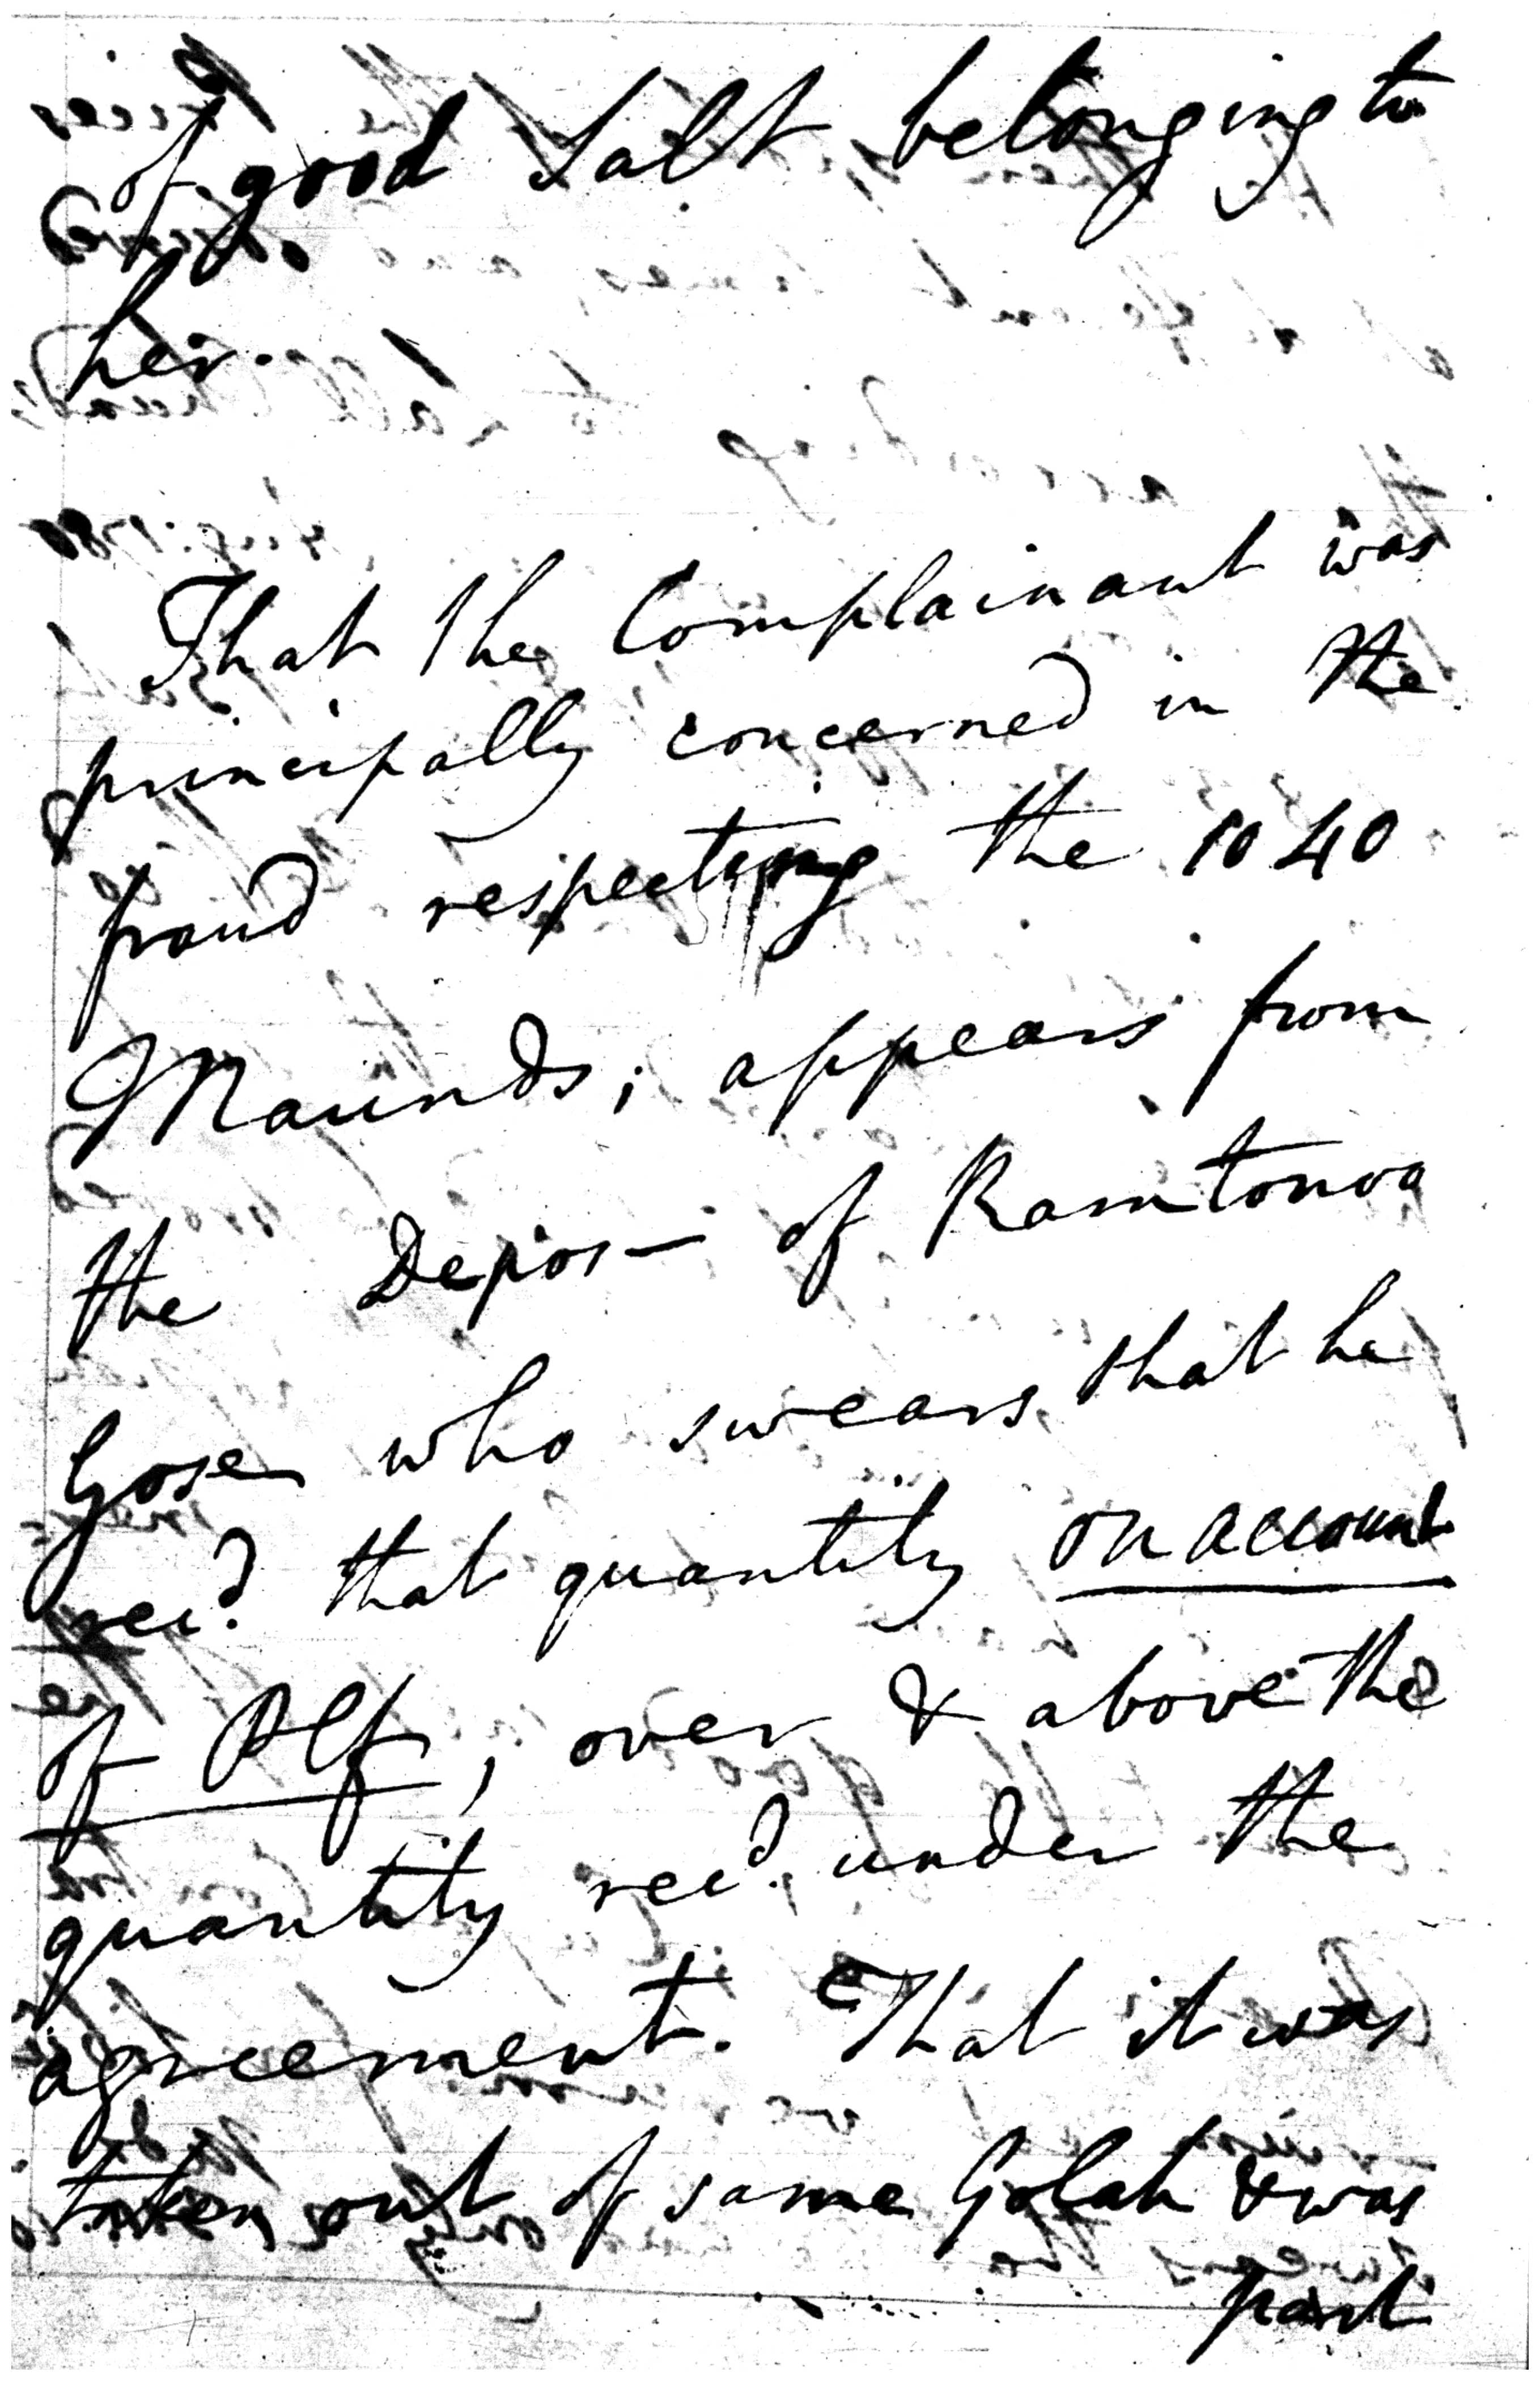 of good Salt belonging to
her.
That the Complainant was
principally concerned in the
fraud respecting the 1040
Maunds; appears from
the Depos— of Ramtonoo
Gose who swears, that he
recd. that quantity on account
of Plf, over & above the
quantity recd. under the
agreement. That it was
taken out of same Golah & was
part